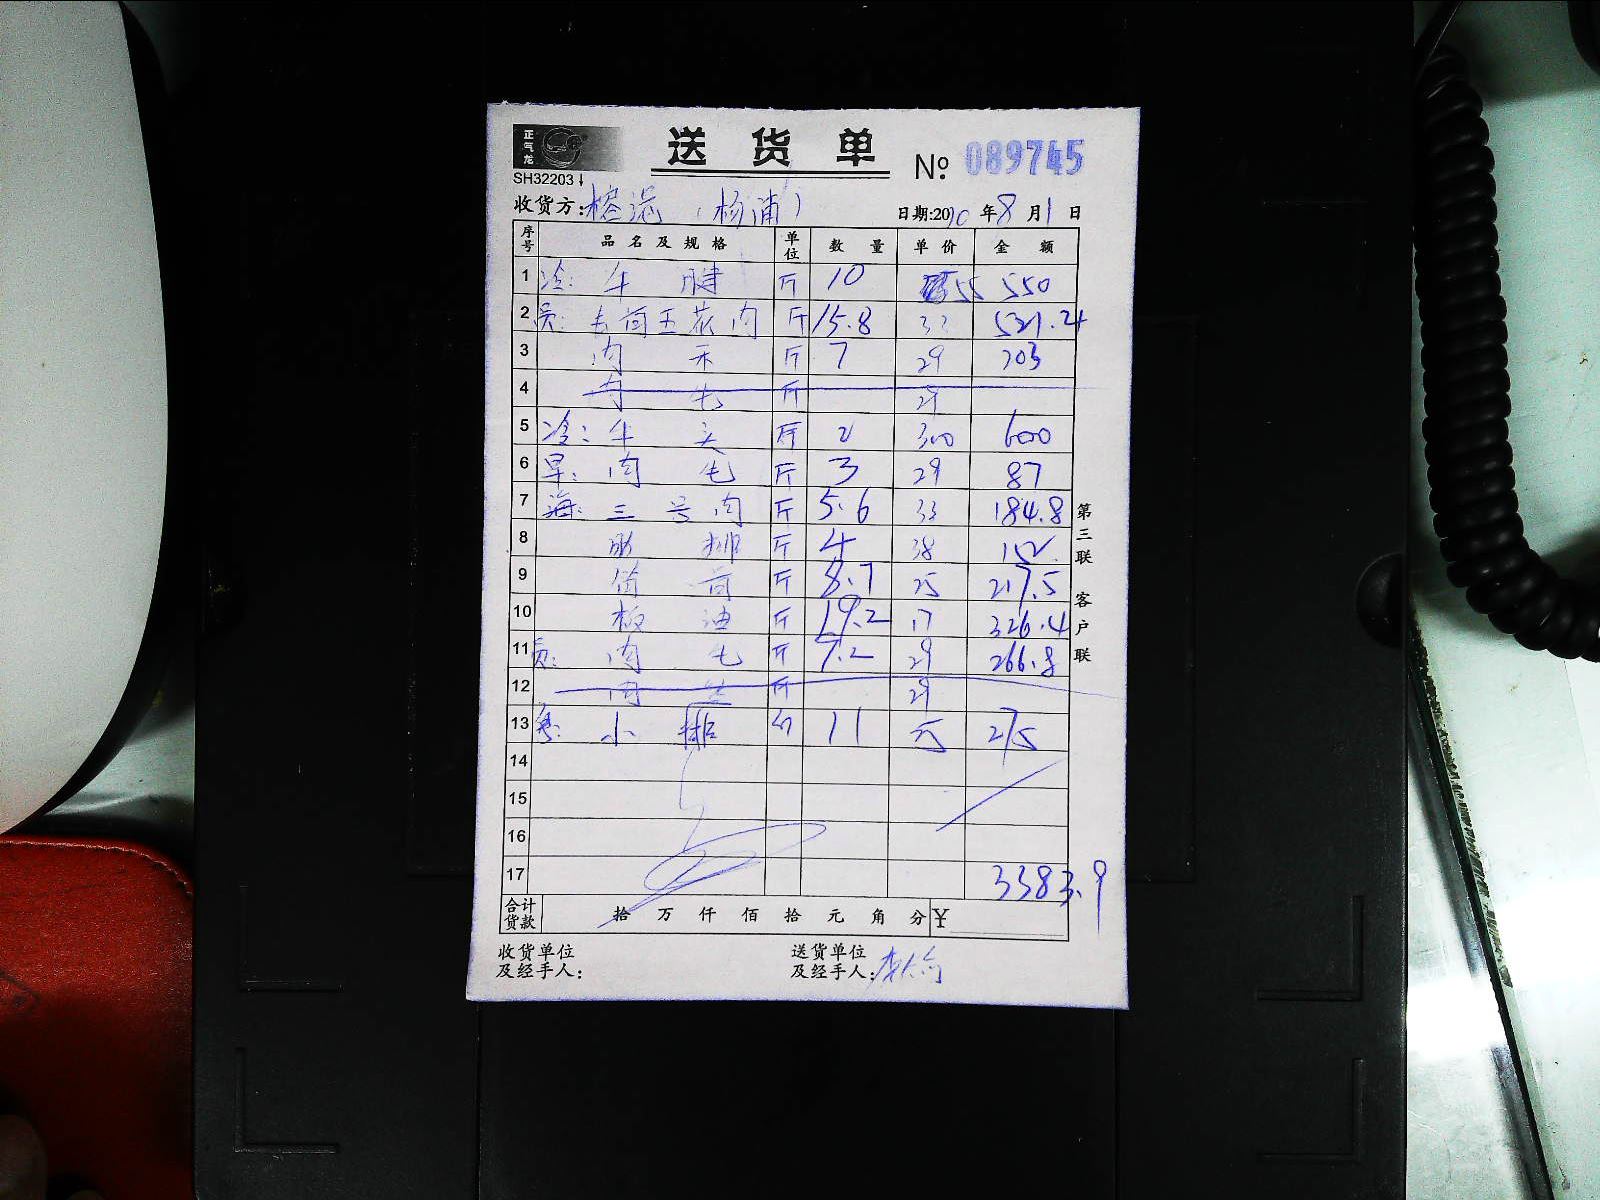 正气龙
送货单
№ 089745
SH32203
收货方: 榕港 (杨浦) 日期:2020年8月1日
序号 品名及规格 单位 数量 单价 金额
1 冷: 牛腱 斤 10 55 550
2 去骨五花肉 斤 15.8 33 521.4
3 肉 斤 7 29 203
4 斤 29
5 冷: 牛 斤 2 300 600
6 早: 肉 斤 3 29 87
7 海: 三号肉 斤 5.6 33 184.8
8 肋排 斤 4 38 152
9 筒骨 斤 8.7 25 217.5
10 板油 斤 19.2 17 326.4
11 肉 斤 9.2 29 266.8
12 肉 斤 29
13 小排 11 275
14
15
16
17 3383.9
合计货款 拾 万 仟 佰 拾 元 角 分 ¥
收货单位及经手人:
送货单位及经手人:
第三联 客户联